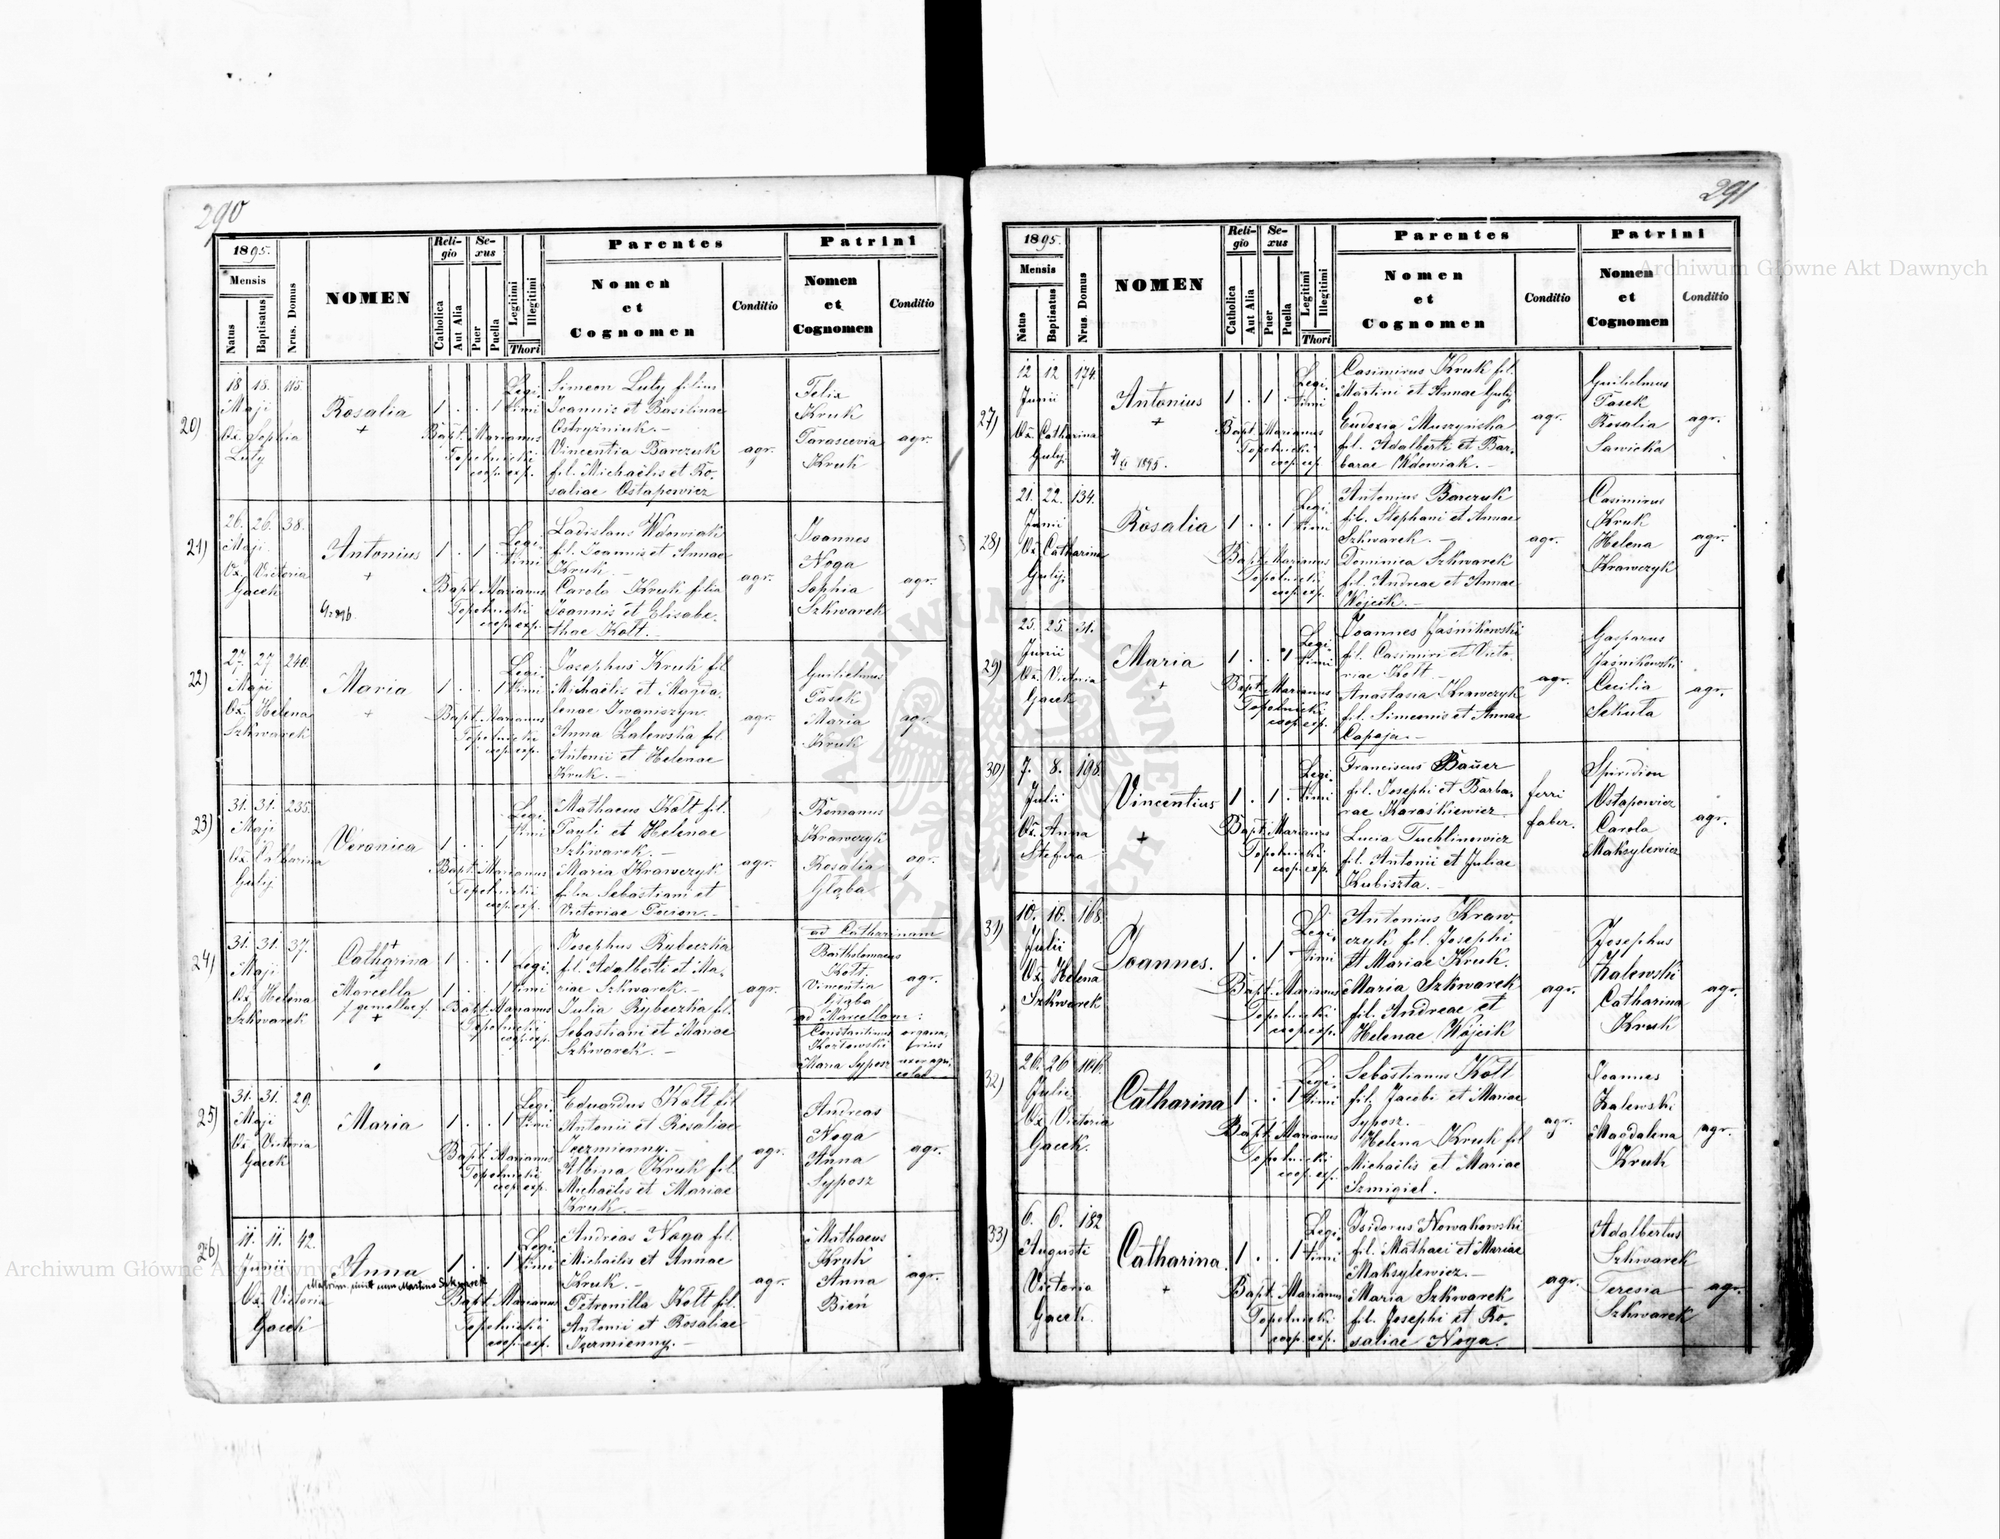 290
1895.
Mensis
Natus
Baptisatus
Nrus. Domus
NOMEN
Reli-
gio
Catholica
Aut Alia
Se-
xus
Puer
Puella
Legitimi
Illegitimi
Thori
Parentes
Nomen
et
Cognomen
Conditio
Patrini
Nomen
et
Cognomen
Conditio
20)
18 18. 115.
Maji
Ox. Sophia
Luty
Rosalia
+
1 . . 1
Legi-
timi
Bapt. Marianus
Topolnicki
coop. exp.
Simeon Luty filius
Joannis et Basilinae
Ostryżniuk.-
Vincentia Barczuk
fil. Michaëlis et Ro-
saliae Ostapowicz
agr.
Felix
Kruk
Parascevia
Kruk
agr.
21)
26. 26. 38.
Maji
Ox. Victoria
Gacek
Antonius
+
1 . 1 .
Legi-
timi
Bapt. Marianus
Topolnicki
coop. exp.
Ladislaus Wdowiak
fil. Joannis et Annae
Kruk.-
Carola Kruk filia
Joannis et Elisabe-
thae Kott.-
agr.
Joannes
Noga
Sophia
Szkwarek
agr.
22)
27. 27 240.
Maji
Ox. Helena
Szkwarek
Maria
+
1 . . 1
Legi-
timi
Bapt. Marianus
Topolnicki
coop. exp.
Josephus Kruk fil
Michaëlis et Magda-
lenae Iwaniszyn.
Anna Zalewska fil.
Antonii et Helenae
Kruk.-
agr.
Guilielmus
Pasek
Maria
Kruk
agr.
23)
31. 31. 235.
Maji
Ox. Catharina
Guly
Veronica
1 . . 1
Legi-
timi
Bapt. Marianus
Topolnicki
coop. exp.
Mathaeus Kott fil.
Pauli et Helenae
Szkwarek.-
Maria Krawczyk
filia Sebastiani et
Victoriae
agr.
Romanus
Krawczyk
Rosalia
Głąba
agr.
24)
31. 31. 37.
Maji
Ox. Helena
Szkwarek
+
Catharina
et
Marcella
gemellae
+
1 . . 1
1 . . 1
Legi-
timi
Bapt. Marianus
Topolnicki
coop. exp.
Josephus Rubeczka
fil. Adalberti et Ma-
riae Szkwarek.-
Julia Rybeczka fil.
Sebastiani et Mariae
Szkwarek.-
agr.
ad Catharinam
Bartholomaeus
Kott.
Vincentia
Głąba
agr.
ad Marcellam:
Constantinus
Kozłowski
Maria Syposz
organa-
rius
uxor agri-
colae
25)
31. 31. 29.
Maji
Ox. Victoria
Gacek
Maria
1 . . 1
Legi-
timi
Bapt. Marianus
Topolnicki
coop. exp.
Eduardus Kott fil
Antonii et Rosaliae
Iczmienny.-
Albina Kruk fil
Michaëlis et Mariae
Kruk.-
agr.
Andreas
Noga
Anna
Syposz
agr.
26)
11. 11. 42.
Junii
Ox. Victoria
Gacek
Anna
1 . . 1
Legi-
timi
Bapt. Marianus
Topolnicki
coop. exp.
Andreas Noga fil.
Michaëlis et Annae
Kruk.-
Petronilla Kott fil.
Antonii et Rosaliae
agr.
Mathaeus
Kruk
Anna
Bień
agr.
291
1895.
Mensis
Natus
Baptisatus
Nrus. Domus
NOMEN
Reli-
gio
Catholica
Aut Alia
Se-
xus
Puer
Puella
Legitimi
Illegitimi
Thori
Parentes
Nomen
et
Cognomen
Conditio
Patrini
Nomen
et
Cognomen
Conditio
27)
12 12 174.
Junii
Ox. Catharina
Guly
Antonius
+
1895.
1 . 1 .
Legi-
timi
Bapt. Marianus
Topolnicki
coop. exp.
Casimirus Kruk fil.
Martini et Annae Guly
Eudoxia Muszyńska
fil. Adalberti et Bar-
barae Wdowiak.-
agr.
Guilielmus
Pasek
Rosalia
Sawicka
agr.
28)
21. 22. 134.
Junii
Ox. Catharina
Guly
Rosalia
1 . . 1
Legi-
timi
Bapt. Marianus
Topolnicki
coop. exp.
Antonius Barczuk
fil. Stephani et Annae
Szkwarek.-
Dominica Szkwarek
fil. Andreae et Annae
Wojcik.-
agr.
Casimirus
Kruk
Helena
Krawczyk
agr.
29)
25. 25. 31.
Junii
Ox. Victoria
Gacek
Maria
+
1 . . 1
Legi-
timi
Bapt. Marianus
Topolnicki
coop. exp.
Joannes Jaśnikowski
fil. Casimiri et Victo-
riae Kott.-
Anastasia Krawczyk
fil. Simeonis et Annae
Capaja.-
agr.
Gasparus
Jaśnikowski
Cecilia
Sekuła
agr.
30)
7. 8. 198.
Julii
Ox. Anna
Stefura
Vincentius
+
1 . 1 .
Legi-
timi
Bapt. Marianus
Topolnicki
coop. exp.
Franciscus Bauer
fil. Josephi et Barba-
rae Karaśkiewicz
Lucia Tuchlinowicz
fil. Antonii et Juliae
Kubiszta.-
ferri
faber.
Spiridion
Ostapowicz
Carola
Maksylewicz
agr.
31)
10. 10. 168.
Julii
Ox. Helena
Szkwarek
Joannes.
1 . 1 .
Legi-
timi
Bapt. Marianus
Topolnicki
coop. exp.
Antonius Kraw-
czyk fil. Josephi
et Mariae Kruk.
Maria Szkwarek
fil. Andreae et
Helenae Wójcik
agr.
Josephus
Zalewski
Catharina
Kruk
agr.
32)
26. 26 106.
Julii
Ox. Victoria
Gacek.
Catharina
1 . . 1
Legi-
timi
Bapt. Marianus
Topolnicki
coop. exp.
Sebastianus Kott
fil. Jacobi et Mariae
Syposz.-
Helena Kruk fil
Michaëlis et Mariae
Szmigiel.
agr.
Joannes
Zalewski
Magdalena
Kruk
agr.
33)
6. 6. 182
Augusti
Victoria
Gacek.
Catharina.
+
1 . . 1
Legi-
timi
Bapt. Marianus
Topolnicki
coop. exp.
Isidorus Nowakowski
fil. Mathaei et Mariae
Maksylewicz.-
Maria Szkwarek
fil. Josephi et Ro-
saliae Noga.
agr.
Adalbertus
Szkwarek
Teresia
Szkwarek
agr.
Archiwum Główne Akt Dawnych
Archiwum Główne Akt Dawnych